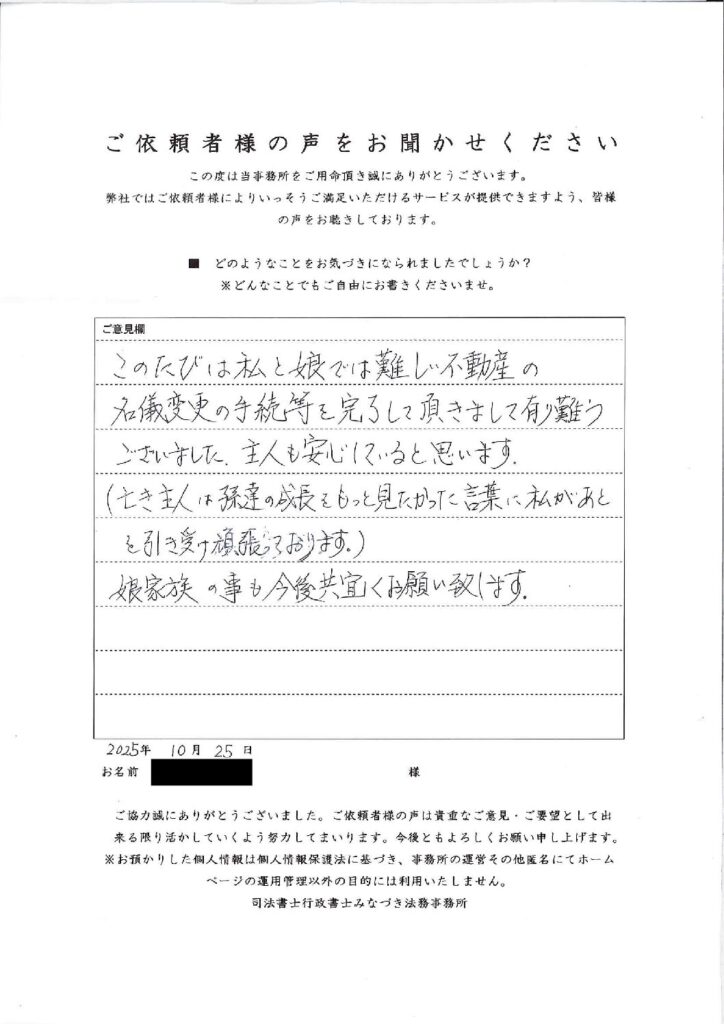 ご依頼者様の声をお聞かせください
この度は当事務所をご用命頂き誠にありがとうございます。
弊社ではご依頼者様によりいっそうご満足いただけるサービスが提供できますよう、皆様
の声をお聴きしております。
■ どのようなことをお気づきになられましたでしょうか？
※どんなことでもご自由にお書きくださいませ。
ご意見欄
このたびは私と娘では難しい不動産の
名儀変更の手続等を完了して頂きまして有り難う
ございました。主人も安心していると思います。
(亡き主人は孫達の成長をもっと見たかった言葉に私があと
を引き受け頑張っております。)
娘家族の事も今後共宜くお願い致します。
2025年 10月 25日
お名前 様
ご協力誠にありがとうございました。ご依頼者様の声は貴重なご意見・ご要望として出
来る限り活かしていくよう努力してまいります。今後ともよろしくお願い申し上げます。
※お預かりした個人情報は個人情報保護法に基づき、事務所の運営その他匿名にてホーム
ページの運用管理以外の目的には利用いたしません。
司法書士行政書士みなづき法務事務所